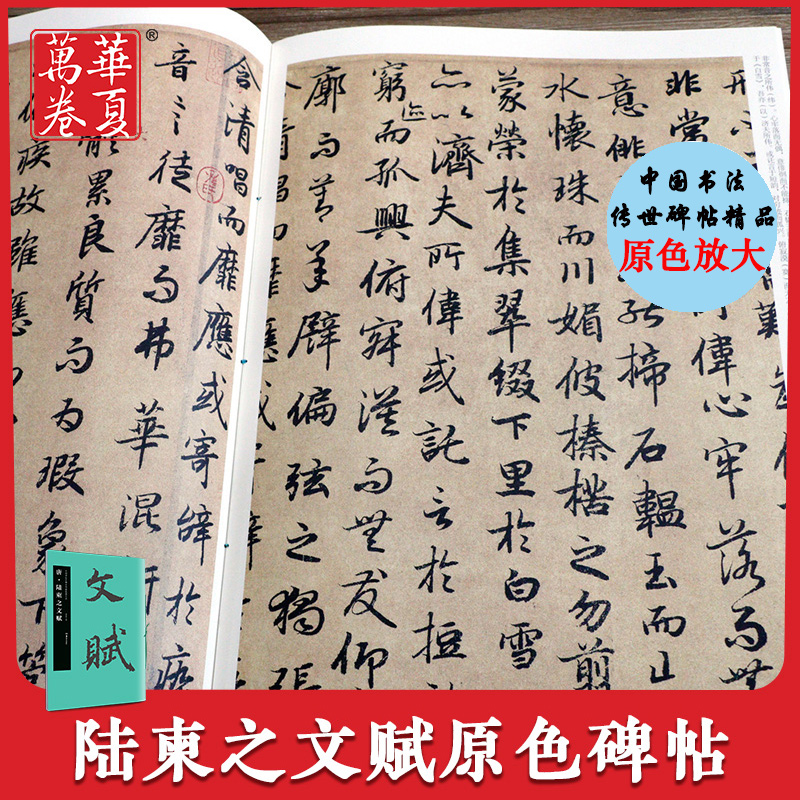 華夏
萬卷
®
中国书法
传世碑帖精品
原色放大
非常
偉心牢落而無
意俳
能揥石韞玉而山
水懷珠而川媚彼榛楛之勿剪
蒙榮於集翠綴下里於白雪
亦以濟夫所偉或託言於短
窮迹而孤興俯寂漠而無友仰
廓而莫承譬偏弦之獨張
含清唱而靡應或
含清唱而靡應或寄辭於瘁
音之徒靡而弗華混妍
能累良質而为瑕象下管
疾故雖應
文賦
唐·陆柬之文赋
陆柬之文赋原色碑帖